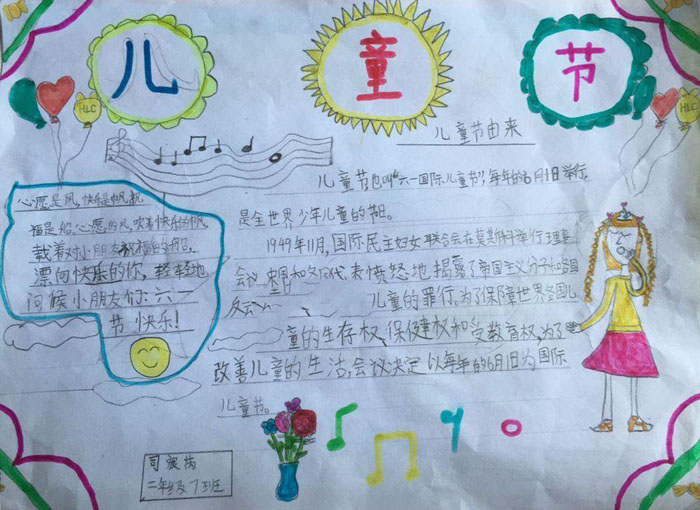 儿 童 节
HLC
HLC
儿童节由来
儿童节也叫“六一国际儿童节”,每年的6月1日举行,
是全世界少年儿童的节日。
1949年11月,国际民主妇女联合会在莫斯科举行理事
会议 中国和各国代表愤怒地揭露了帝国主义分子和各国
儿童的罪行。为了保障世界各国儿
童的生存权、保健权和受教育权,为了
改善儿童的生活,会议决定以每年的6月1日为国际
儿童节。
心愿是风,快乐是帆,祝
福是船。心愿的风,吹着快乐的帆,
载着对小朋友祝福的船,
漂向快乐的你,轻轻地
问候小朋友们:六一
节快乐!
二年级7班